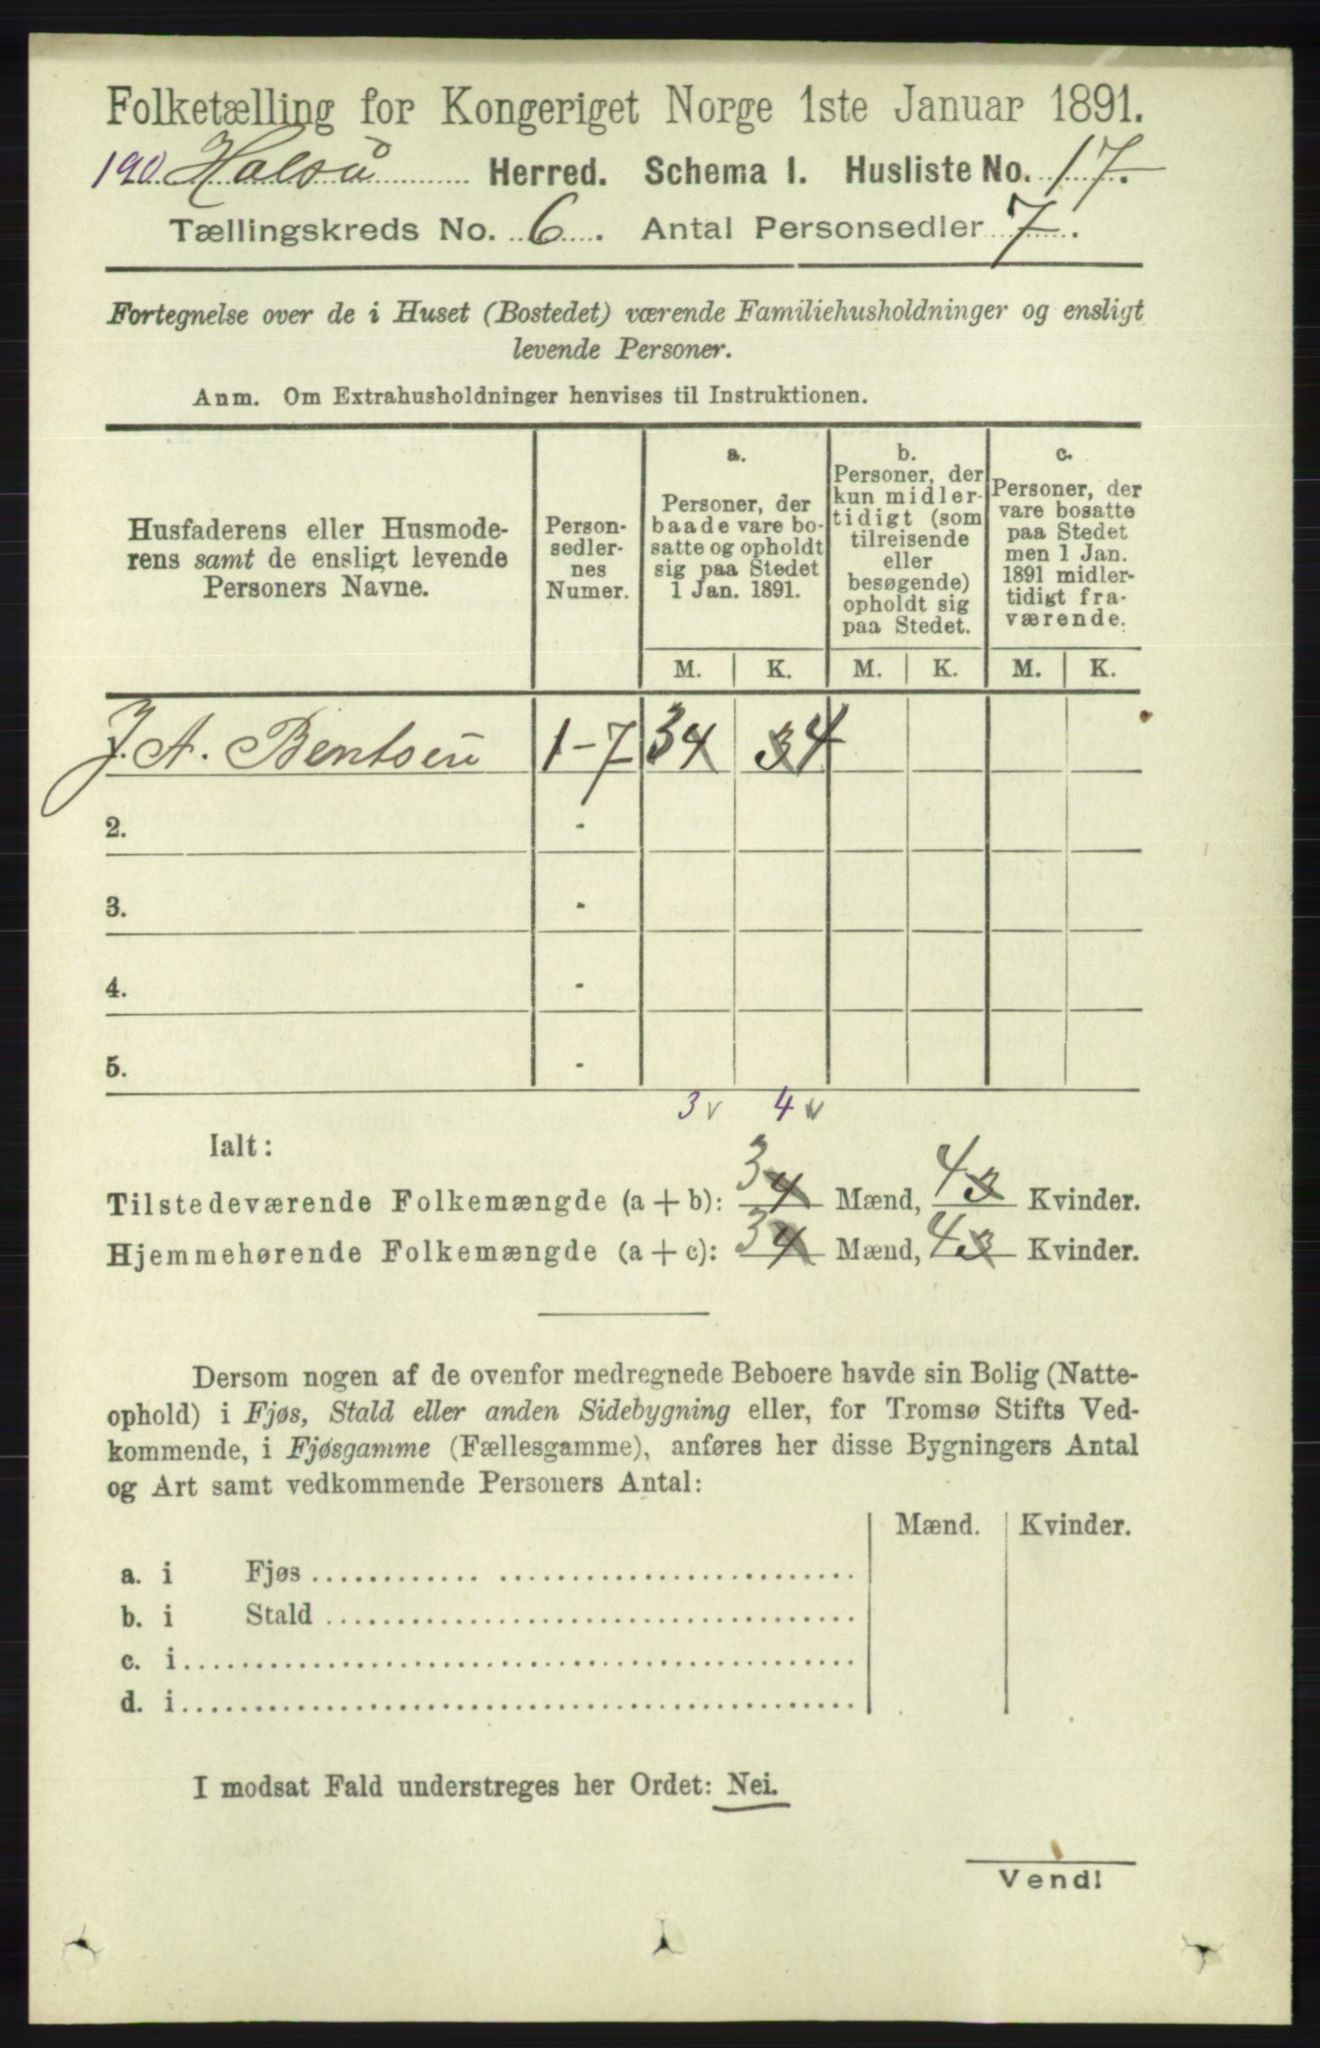 Folketælling for Kongeriget Norge 1ste Januar 1891.
190 Halsü Herred. Schema I. Husliste No. 17.
Tællingskreds No. 6. Antal Personsedler 7.
Fortegnelse over de i Huset (Bostedet) værende Familiehusholdninger og ensligt
levende Personer.
Anm. Om Extrahusholdninger henvises til Instruktionen.
Husfaderens eller Husmode-
rens samt de ensligt levende
Personers Navne.
Person-
sedler-
nes
Numer.
a.
Personer, der
baade vare bo-
satte og opholdt
sig paa Stedet
1 Jan. 1891.
b.
Personer, der
kun midler-
tidigt (som
tilreisende
eller
besøgende)
opholdt sig
paa Stedet.
c.
Personer, der
vare bosatte
paa Stedet
men 1 Jan.
1891 midler-
tidigt fra-
værende.
M. K. M. K. M. K.
J. A. Bentsen 1-7 3 4 3 4
2. -
3. -
4. -
5. -
3 v 4 v
Ialt:
Tilstedeværende Folkemængde (a + b): 3 4 Mænd, 4 3 Kvinder.
Hjemmehørende Folkemængde (a + c): 3 4 Mænd, 4 3 Kvinder.
Dersom nogen af de ovenfor medregnede Beboere havde sin Bolig (Natte-
ophold) i Fjøs, Stald eller anden Sidebygning eller, for Tromsø Stifts Ved-
kommende, i Fjøsgamme (Fællesgamme), anføres her disse Bygningers Antal
og Art samt vedkommende Personers Antal:
Mænd. Kvinder.
a. i Fjøs
b. i Stald
c. i
d. i
I modsat Fald understreges her Ordet: Nei.
Vend!